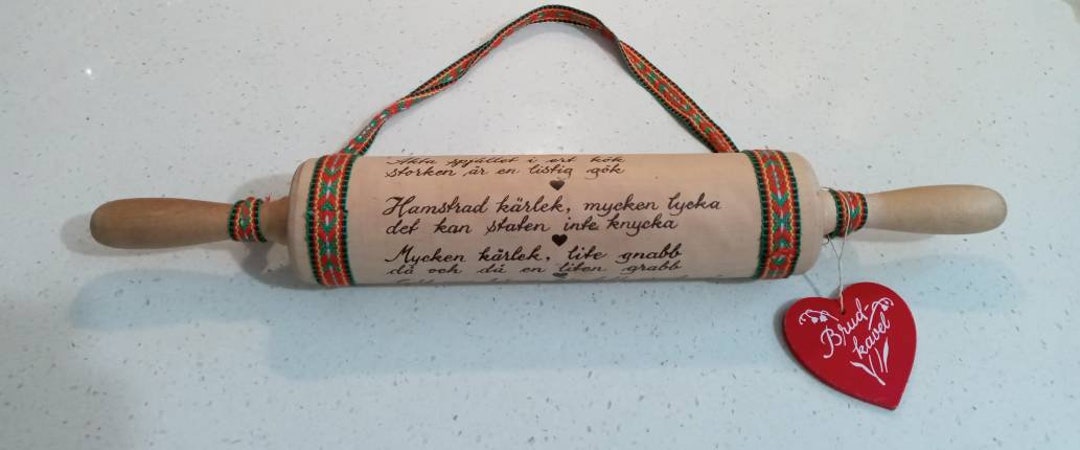 Akta spjället i ert kök
storken är en listig gök
Hamstrad kärlek, mycken lycka
det kan staten inte knycka
Mycken kärlek, lite gnabb
då och då en liten grabb
Brud-
kavel